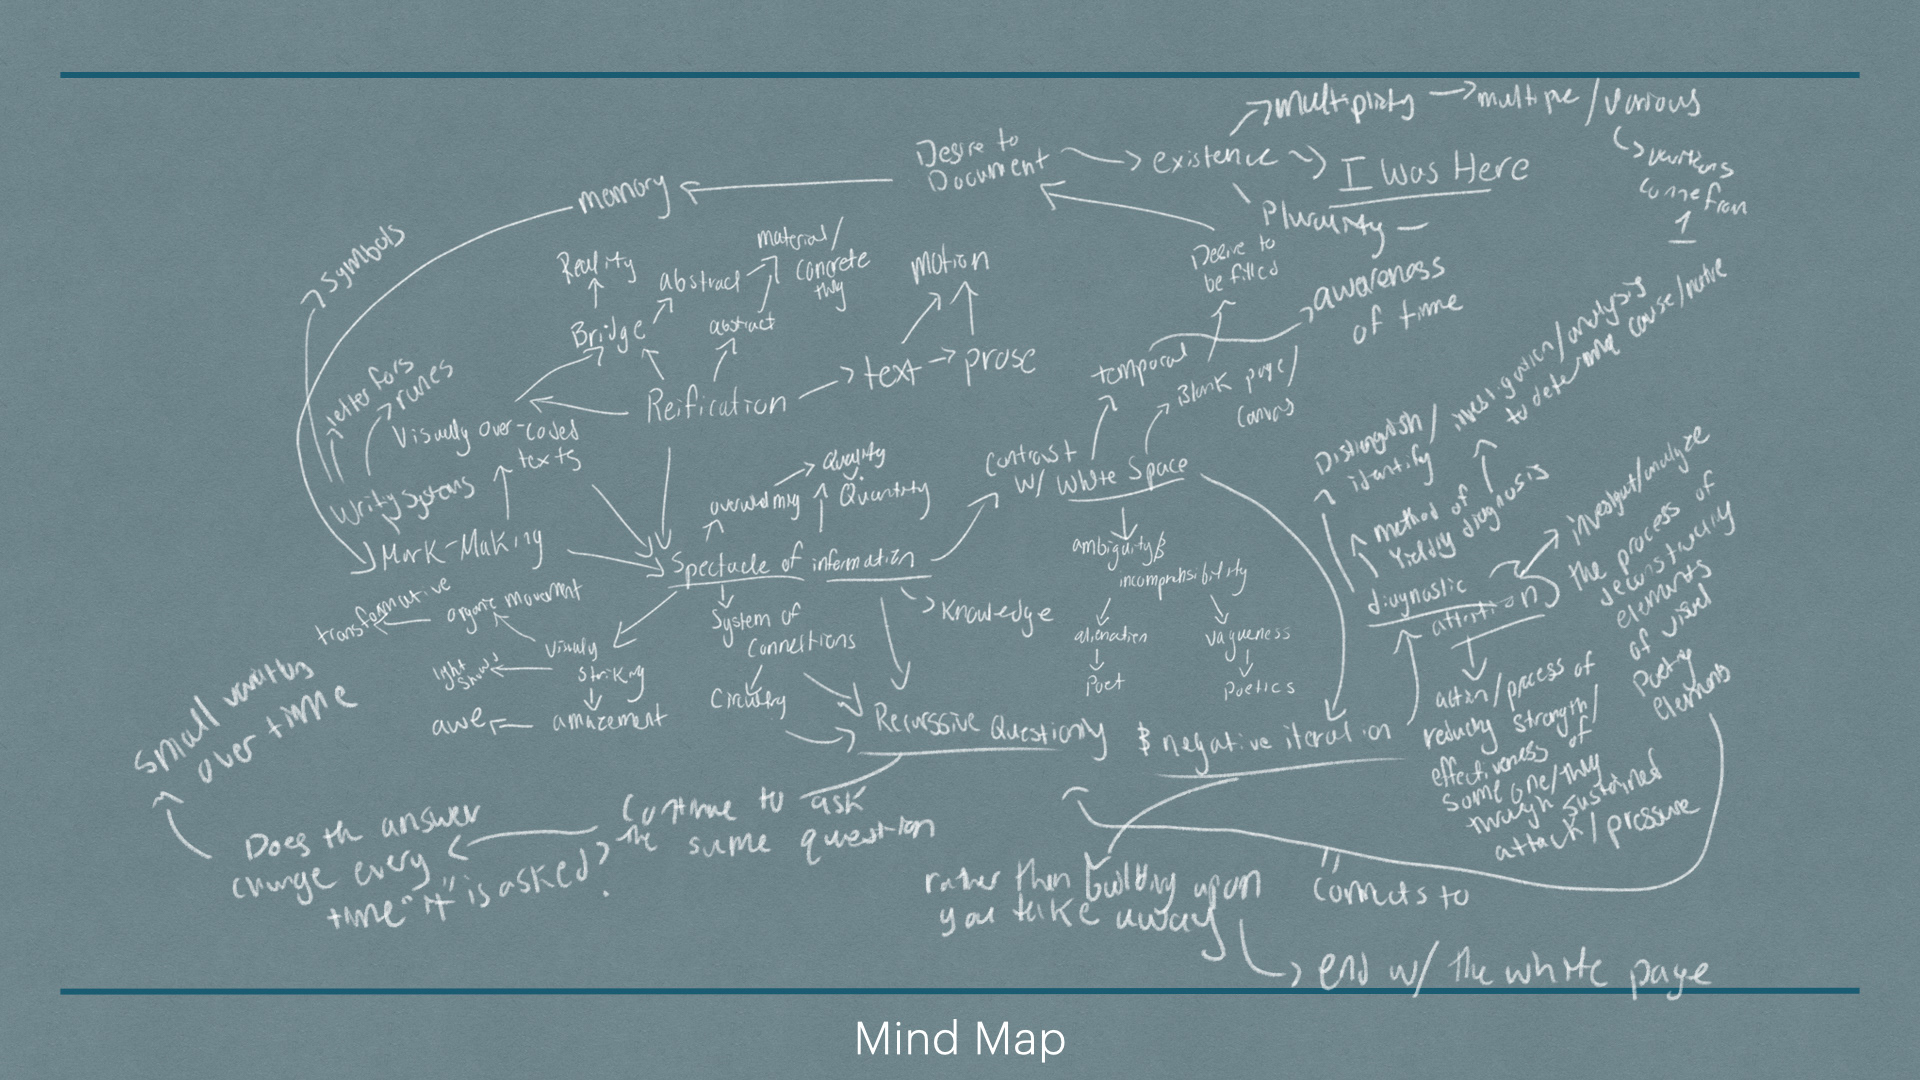 multiplicity → multiple / various
variations
come from
1
Desire to
Document
existence
I Was Here
Plurality –
memory
symbols
Desire to
be filled
awareness
of time
Reality
abstract
material/
concrete
thing
motion
Bridge
abstract
text → prose
Reification
temporal
Blank page/
canvas
letter fors
runes
Visually over-coded
texts
Writing systems
Mark-Making
overwelming
Quality
Quantity
Contrast
w/ White Space
Spectacle of information
ambiguity &
incomprehsibility
alienation
Poet
vagueness
Poetics
transformative
organic movement
Visualy
striking
light
shows
amazement
awe
System of
Connections
Circuitry
Knowledge
Recurssive Questioning
& negative iteration
Distinguish/
identify
investigation/analysis
to determine cause/nature
method of
Yielding diagnosis
diagnostic
attrition
investigate/analyze
the process of
deconstructing
elements
of visual
Poetry
elements
action/process of
reducing strength/
effectiveness of
some one/thing
through sustained
attack/pressure
small variations
over time
Does the answer
change every
time "it" is asked?
Continue to ask
the same question
rather than building upon
you take away
connects to
end w/ the white page
Mind Map